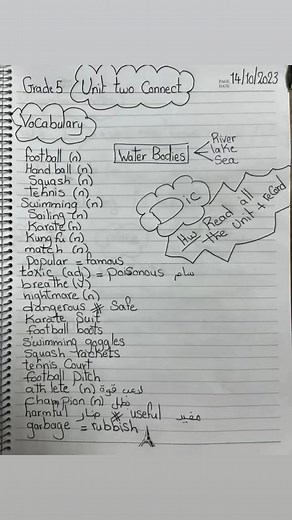 Grade 5 Unit two Connect
PAGE
DATE 14/10/2023
Vocabulary
Water Bodies
River
lake
Sea
football (n)
Hand ball (n)
Squash (n)
Tennis (n)
Swimming (n)
Sailing (n)
Karate (n)
Kung fu (n)
match (n)
Popular = famous
toxic (adj) = poisonous سام
breathe (v)
nightmare (n)
dangerous ≠ Safe
Karate Suit
football boots
Swimming goggles
Squash rackets
tennis Court
football Pitch
athlete (n) لاعب قوة
Champion (n) بطل
harmful ضار ≠ useful مفيد
garbage = rubbish
Dic
Hw Read all
the Unit + record